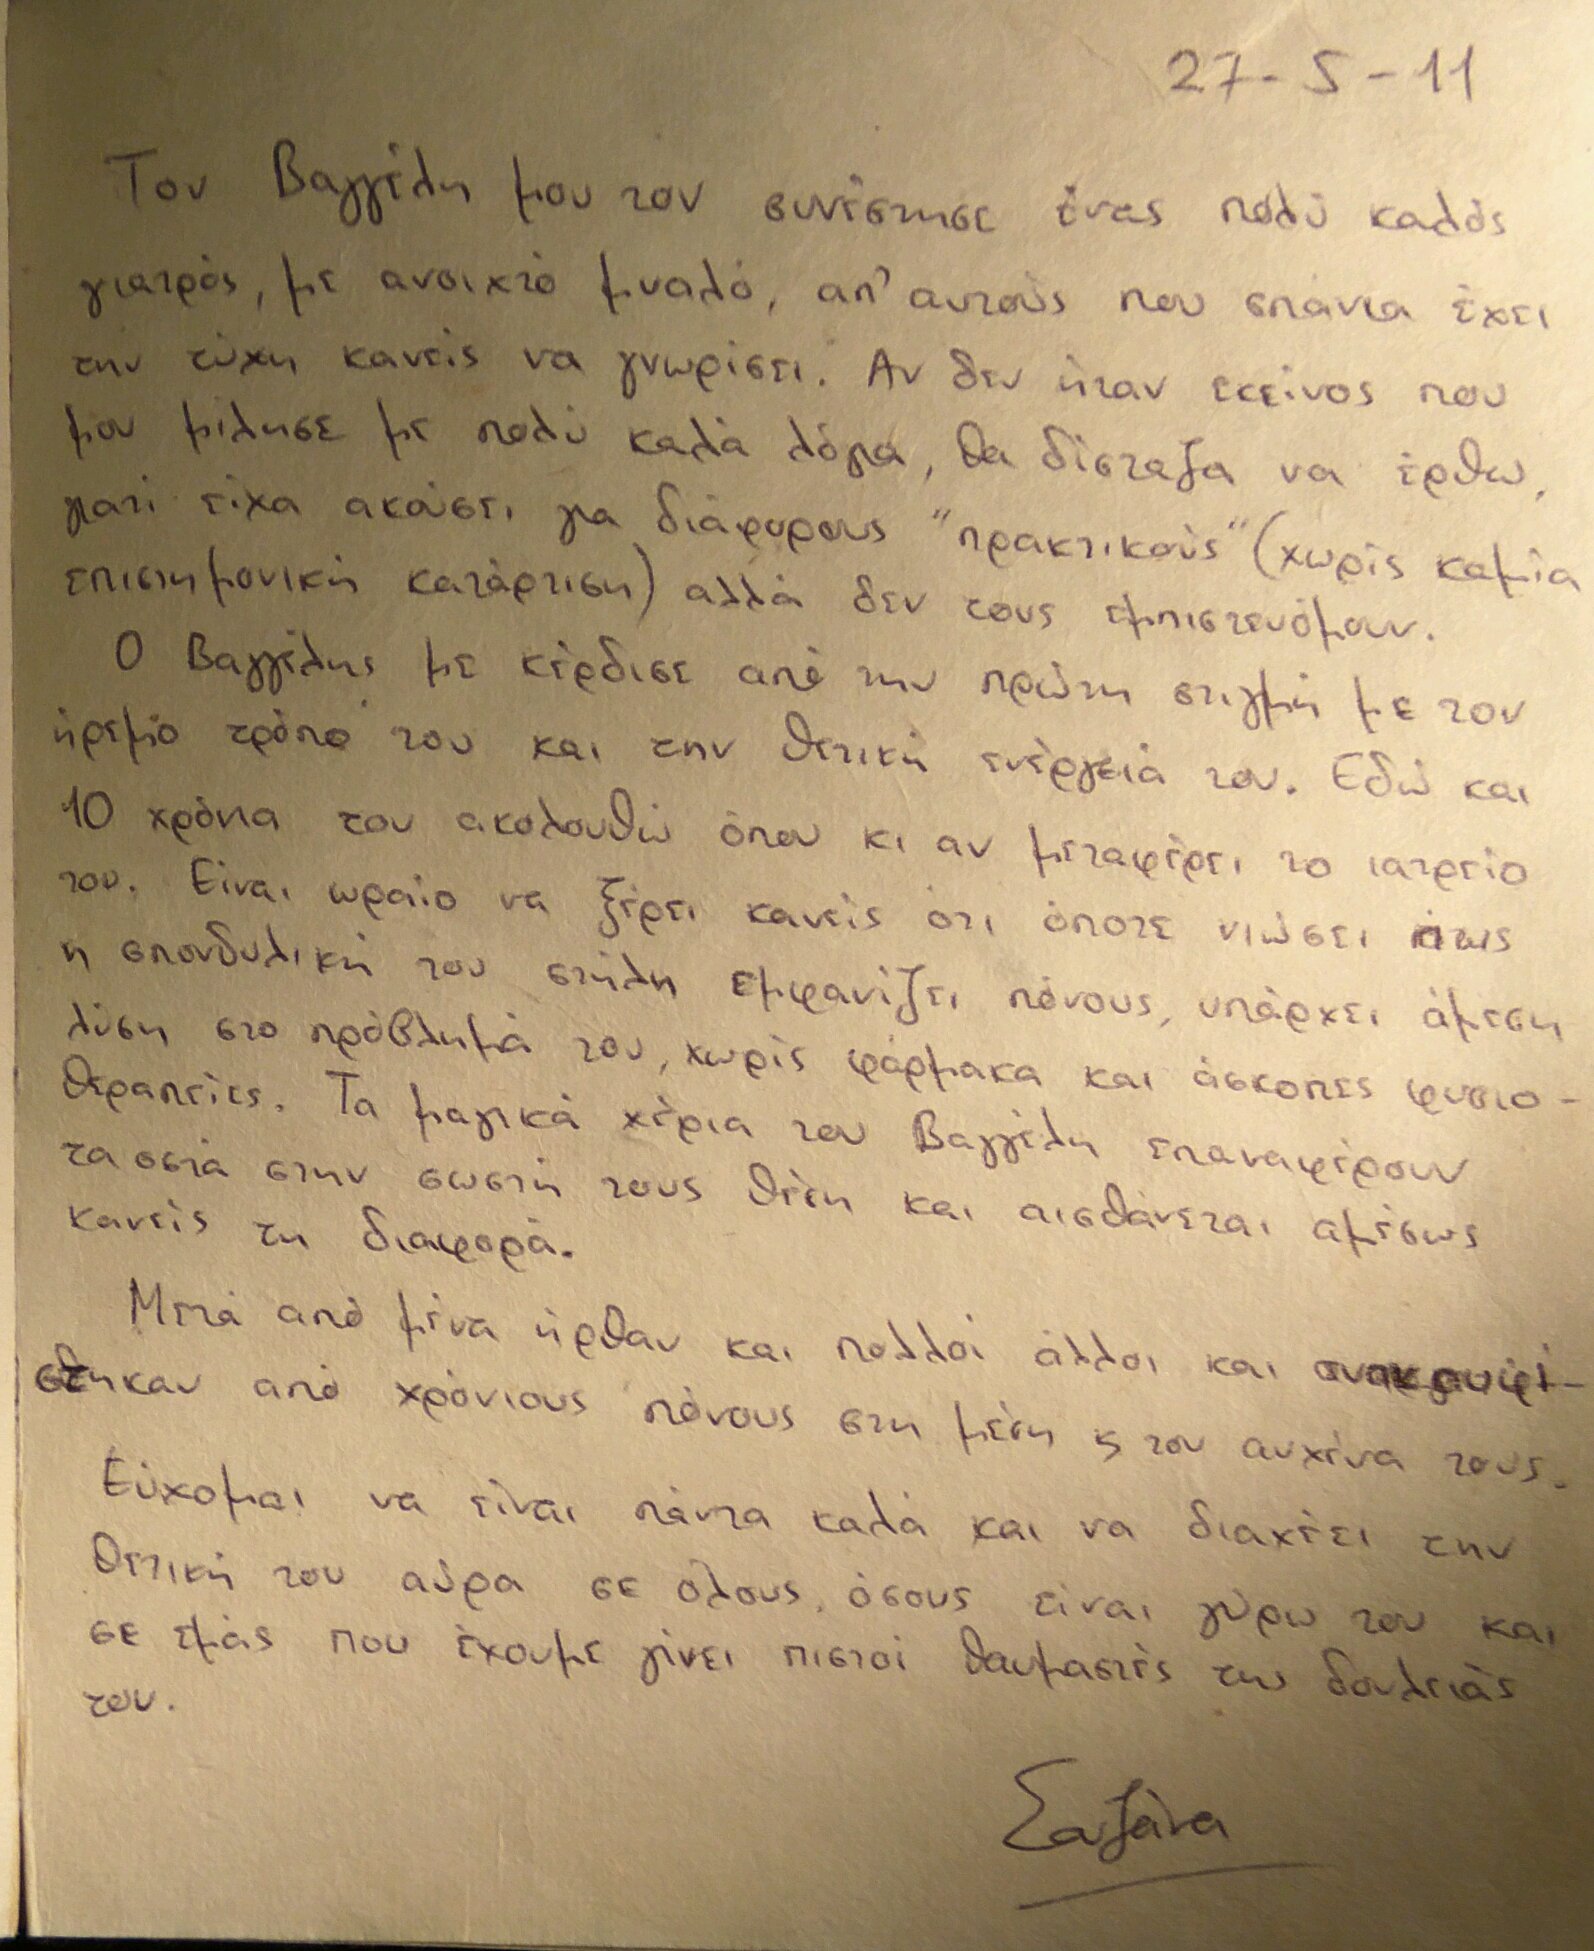 27-5-11
Τον Βαγγέλη μου τον συνέστησε ένας πολύ καλός
γιατρός, με ανοιχτό μυαλό, απ' αυτούς που σπάνια έχει
την τύχη κανείς να γνωρίσει. Αν δεν ήταν εκείνος που
μου μίλησε με πολύ καλά λόγια, θα δίσταζα να έρθω,
γιατί είχα ακούσει για διάφορους "πρακτικούς" (χωρίς καμία
επιστημονική κατάρτιση) αλλά δεν τους εμπιστευόμουν.
Ο Βαγγέλης με κέρδισε από την πρώτη στιγμή με τον
ήρεμο τρόπο του και την θετική ενέργειά του. Εδώ και
10 χρόνια τον ακολουθώ όπου κι αν μεταφέρει το ιατρείο
του. Είναι ωραίο να ξέρει κανείς ότι όποτε νιώσει πως
η σπονδυλική του στήλη εμφανίζει πόνους, υπάρχει άμεση
λύση στο πρόβλημά του, χωρίς φάρμακα και άσκοπες φυσιο-
θεραπείες. Τα μαγικά χέρια του Βαγγέλη επαναφέρουν
τα οστά στην σωστή τους θέση και αισθάνεται αμέσως
κανείς τη διαφορά.
Μετά από μένα ήρθαν και πολλοί άλλοι και ανακουφί-
στηκαν από χρόνιους πόνους στη μέση ϗ τον αυχένα τους.
Εύχομαι να είναι πάντα καλά και να διαχέει την
θετική του αύρα σε όλους, όσους είναι γύρω του και
σε εμάς που έχουμε γίνει πιστοί θαυμαστές της δουλειάς
του.
Σουζάνα